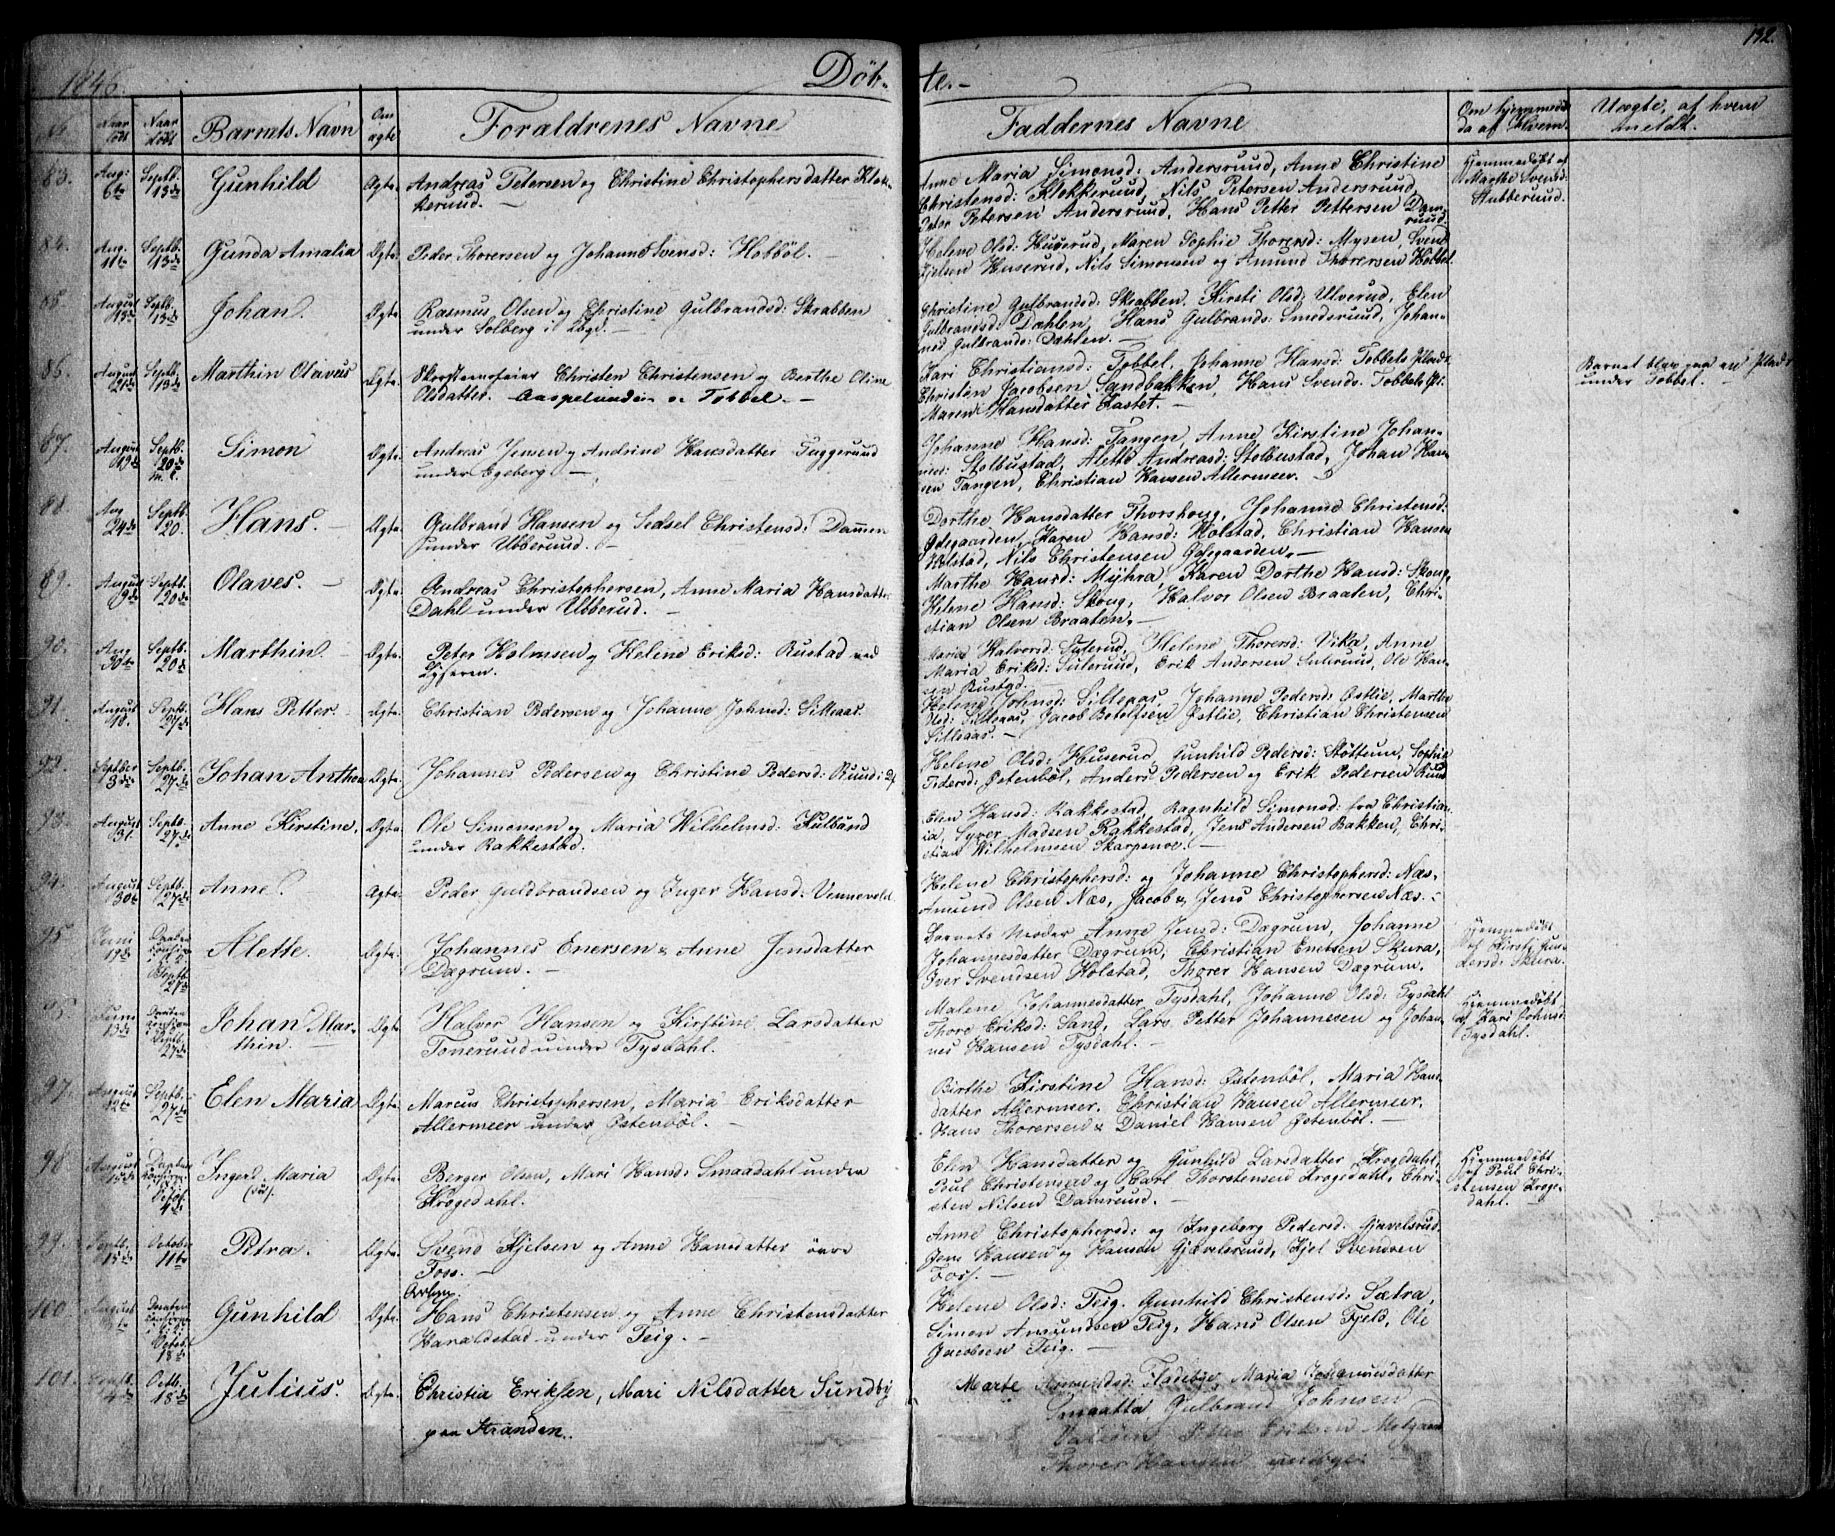 1846. Døb- te.- 192.
No Naar født Naar døbt Barnets Navn Om ægte Forældrenes Navne Faddernes Navne Om hjemmedøbt da af Hvem. Uægte, af hvem meldt.
83. Aug: 6te Septb. 13de Gunhild Ægte Andreas Petersen og Christine Christophersdatter Klok-
kerud. -
Anne Maria Simonsd: Andersruud, Anne Christine
Christensd: Klokkeruud, Nils Petersen Andersruud,
Peter Petersen Andersruud, Hans Petter Pettersen Dam-
ruud.
Hjemmedøbt af
Marthe Svensd:
Stubberuud.
84. Aug. 11te Septb. 13de Gunda Amalia Ægte Peder Thorersen og Johanne Svensd: Hobböl. -
Helene Olsd: Huserud, Maren Sophie Thorersd: Mysen, Svend
Kjelsen Huserud, Nils Simonsen og Amund Thorersen Hobbel.
85. August 13de Septb. 13de Johan. Ægte Rasmus Olsen og Christine Gulbrandsd: Skrabben
under Solberg i
Christine Gulbrandsd: Skrabben. Kirsti Olsd. Ulverud, Elen
Gulbrandsd: Dæhlen, Hans Gulbrands: Smedsruud, Johan-
nes Gulbrands: Dæhlen. -
86. August 21de Septb. 13de Marthin Olaves Ægte Skorstensfeier Christen Christensen og Berthe Oline
Olsdatter. Aaspelunden Tobbel. -
Kari Christiansd: Tobbel, Johanne Hansd: Tobbels
Christen Jacobsen Sandbakken, Hans Svends. Tobbels
Maren Hansdatter Castet. -
Barnet blev paa en
under Tobbel. -
87. August 19de Septb. 20de Simon Ægte Andreas Jensen og Andrine Hansdatter Tuggerud
under Egeberg -
Johanne Hansd: Tangen, Anne Kirstine Johan-
nesd: Stolbustad, Alette Andreasd: Stolbustad, Johan Han-
sen Tangen, Christian Hansen Allermeer.
88. Aug 24de Septb. 20. Hans. - Ægte Gulbrand Hansen og Sidsel Christensd: Dammen
under Ubberuud. -
Dorthe Hansdatter Thorskoug, Johanne Christensd:
Ødegaarden, Karen Hansd: Holstad, Christian Hansen
Holstad, Nils Christensen Ødegaarden. -
89. August 9de Septb. 20de Olaves. - Ægte Andreas Christophersen, Anne Maria Hansdatter
Dahl under Ubberud. -
Marthe Hansd: Myhra, Karen Dorthe Hansd: Skoug,
Helene Hansd: Skoug, Halvor Olsen Braaten, Chri-
stian Olsen Braaten. -
90. Aug 30te Septb. 20de Marthin. - Ægte Peter Holmsen og Helene Eriksd: Rustad ved
Lyseren.
Maria Halvorsd: Sulerud, Helene Thorersd: Vika, Anne
Maria Eriksd: Suleruud, Erik Andersen Suleruud, Ole Han-
sen Rustad. -
91. August 10. Septb. 27de Hans Petter. - Ægte Christian Pedersen og Johanne Johnsd: Silleaas. -
Helene Johnsd: Silleaas, Johanne Pedersd: Østlie, Marthe
Olsd: Silleaas, Jacob Østlie, Christian Christensen
Silleaas. -
92. Septber 3die Septb. 27de Johan Anthon Ægte Johannes Pedersen og Christine Pedersd: Ruud:
Helene Olsd: Huserud, Gunhild Pedersd: Støttum, Sophie
Pedersd: Østenböl, Anders Pedersen og Erik Pedersen Ruud
93. August 31. Septb. 27de Anne Kirstine. Ægte Ole Simonsen og Maria Wilhelmsd: Kulsund
under Rakkestad.
Elen Hansd: Rakkestad, Ragnhild Simonsd: fra Christia-
nia, Syver Madsen Rakkestad, Jens Andersen Bakken, Chri-
stian Wilhelmsen Skarpsnoe. -
94. August 30te Septb. 27de Anne. Ægte Peder Guldbrandsen og Inger Hansd: Vennevold
Helene Christophersd: og Johanne Christophersd: Næs,
Amund Olsen Næs, Jacob & Jens Christophersen Næs. -
95. Juni 17de Septb. 27de Alette. Ægte Johannes Enersen & Anne Jensdatter
Dægrum. -
Barnets Moder Anne Jensd: Dægrum, Johanne
Johannesdatter Dægrum, Christian Enersen Skura,
Iver Svendsen Holstad, Thorer Hansen Dægrum.
Hjemmedøbt
af Kirsti Gun-
dersd: Skura.
96. Juni 13de Septb. 27de Johan Mar-
thin. - Ægte Halvor Hansen og Kirstine Larsdatter
Toneruud under Tysdahl.
Malene Johannesdatter Tysdahl, Johanne Olsd: Tysdahl
Thore Eriksd: Sand, Lars Petter Johannesen og Johan-
nes Hansen Tysdahl. -
Hjemmedøbt
af Kari Johnsd:
Tysdahl.
97. August Septb. 27de Elen Maria Ægte Marcus Christophersen, Maria Eriksdatter
Allermeer under Østenböl. -
Birthe Kirstine Hansd: Østenböl, Maria Hans-
datter Allermeer, Christian Hansen Allermeer,
Hans Thorersen & Daniel Hansen Østenböl. -
98 August 15de Octob. 4de Ingerd Maria Ægte Berger Olsen, Mari Hansd: Smaadahl under
Krogedahl.
Elen Hansdatter og Gunhild Larsdatter Krogedahl,
Poul Christensen og Carl Thorstensen Krogedahl, Chri-
sten Nilsen Damruud. -
Hjemmedøbt
af Poul Chri-
stensen Kroge-
dahl. -
99. Septb. 15de October 11te Petra. Ægte Svend Kjelsen og Anne Hansdatter övre
Foss. -
Anne Christophersd: og Ingeborg Pedersd: Gjævelsrud,
Jens Hansen og Hansen Gjævelsruud, Kjel Svendsen
Foss. -
100 August Octob. 18de Gunhild Ægte Hans Christensen og Anne Christensdatter
Haraldstad under Teig. -
Helene Olsd: Teig. Gunhild Christensd: Sætra,
Simon Amundsen Teig, Hans Olsen Fjeld, Ole
Jacobsen Teig. -
101. Septb. 4de Octb. 18de Julius. Ægte Christia Eriksen, Mari Nilsdatter Sundby
paa Stranden.
Marte Amundsd: Fladebye, Maria Johannesdatter
Smaatta, Gulbrand Johnsen
Petter Eriksen
Thorer Hansen